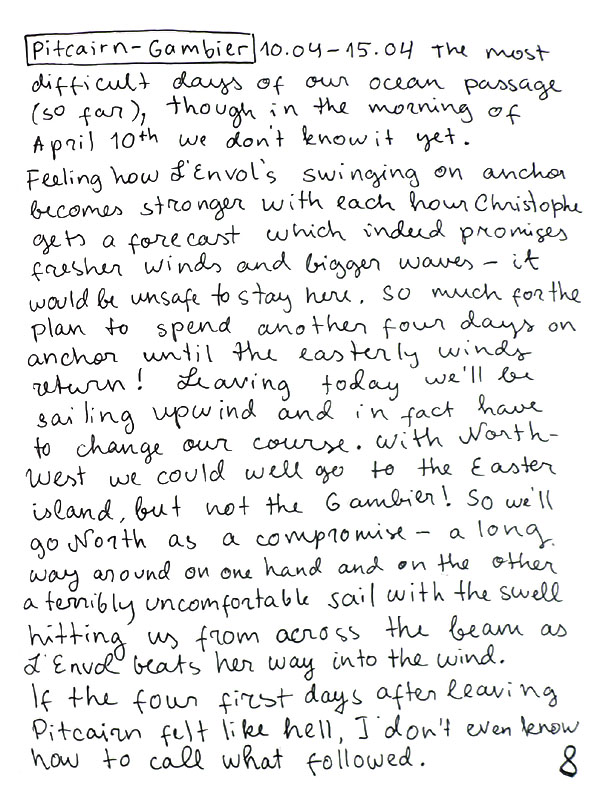 Pitcairn-Gambier 10.04-15.04 The most
difficult days of our ocean passage
(so far), though in the morning of
April 10th we don't know it yet.
Feeling how L'Envol's swinging on anchor
becomes stronger with each hour Christophe
gets a forecast which indeed promises
fresher winds and bigger waves – it
would be unsafe to stay here. So much for the
plan to spend another four days on
anchor until the easterly winds
return! Leaving today we'll be
sailing upwind and in fact have
to change our course. With North-
West we could well go to the Easter
island, but not the Gambier! So we'll
go North as a compromise – a long
way around on one hand and on the other
a terribly uncomfortable sail with the swell
hitting us from across the beam as
L'Envol beats her way into the wind.
If the four first days after leaving
Pitcairn felt like hell, I don't even know
how to call what followed. 8